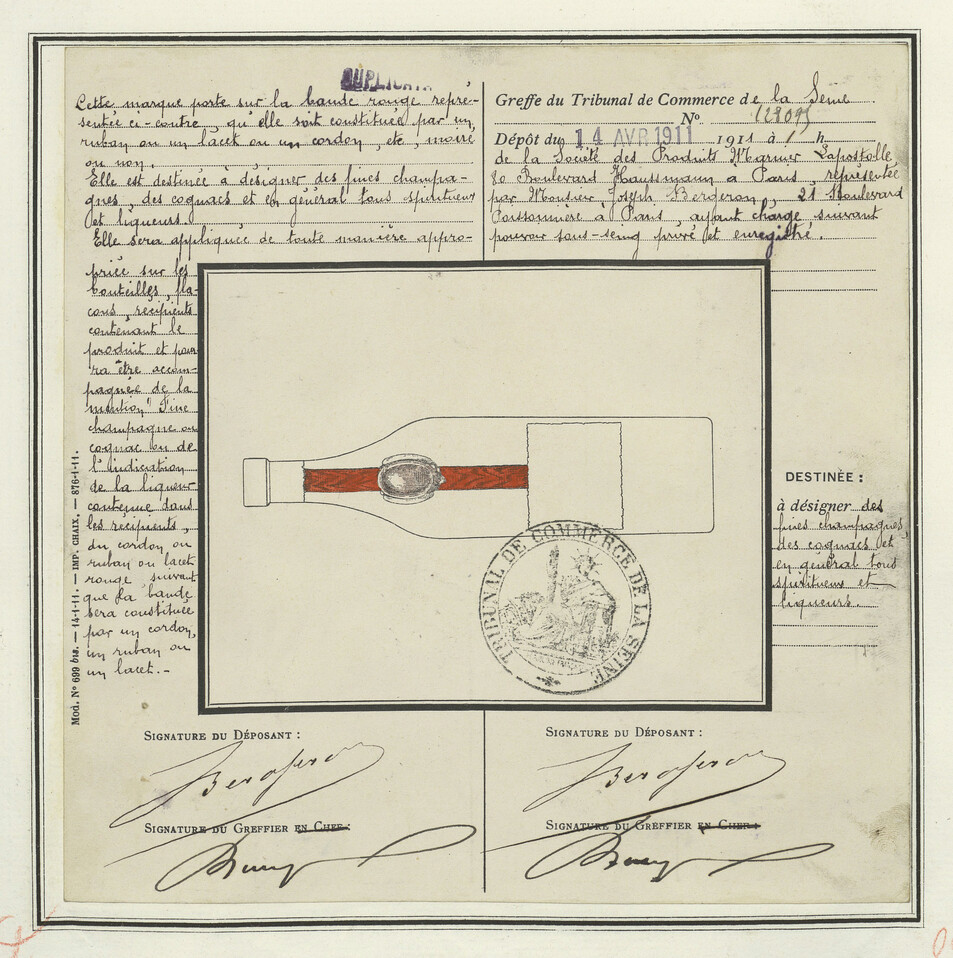 DUPLICATA
Cette marque porte sur la bande rouge repré-
sentée ci-contre, qu'elle soit constituée par un
ruban ou un lacet ou un cordon, etc, moiré
ou non.
Elle est destinée à désigner des fines champa-
gnes, des cognacs et en général tous spiritueux
et liqueurs.
Elle sera appliquée de toute manière appro-
priée sur les
bouteilles, fla-
cons, récipients
contenant le
produit et pour-
ra être accom-
pagnée de la
mention "Fine
champagne ou
cognac ou de
l'indication
de la liqueur
contenue dans
les récipients,
du cordon ou
ruban ou lacet
rouge suivant
que la bande
sera constituée
par un cordon,
un ruban ou
un lacet.-
Mod. No 699 bis. — 14-1-11. — IMP. CHAIX. — 876-1-11.
Greffe du Tribunal de Commerce de la Seine
No 128095
Dépôt du 14 AVR 1911 1911 à 1 h
de la Société des Produits Marnier Lapostolle,
80 Boulevard Haussmann à Paris, représentée
par Monsieur Joseph Bergeron, 21 Boulevard
Poissonnière à Paris, ayant charge suivant
pouvoir sous-seing privé et enregistré.
TRIBUNAL DE COMMERCE DE LA SEINE
DESTINÉE :
à désigner des
fines champagnes,
des cognacs et
en général tous
spiritueux et
liqueurs.
SIGNATURE DU DÉPOSANT :
Bergeron
SIGNATURE DU GREFFIER EN CHEF :
SIGNATURE DU DÉPOSANT :
Bergeron
SIGNATURE DU GREFFIER EN CHEF :